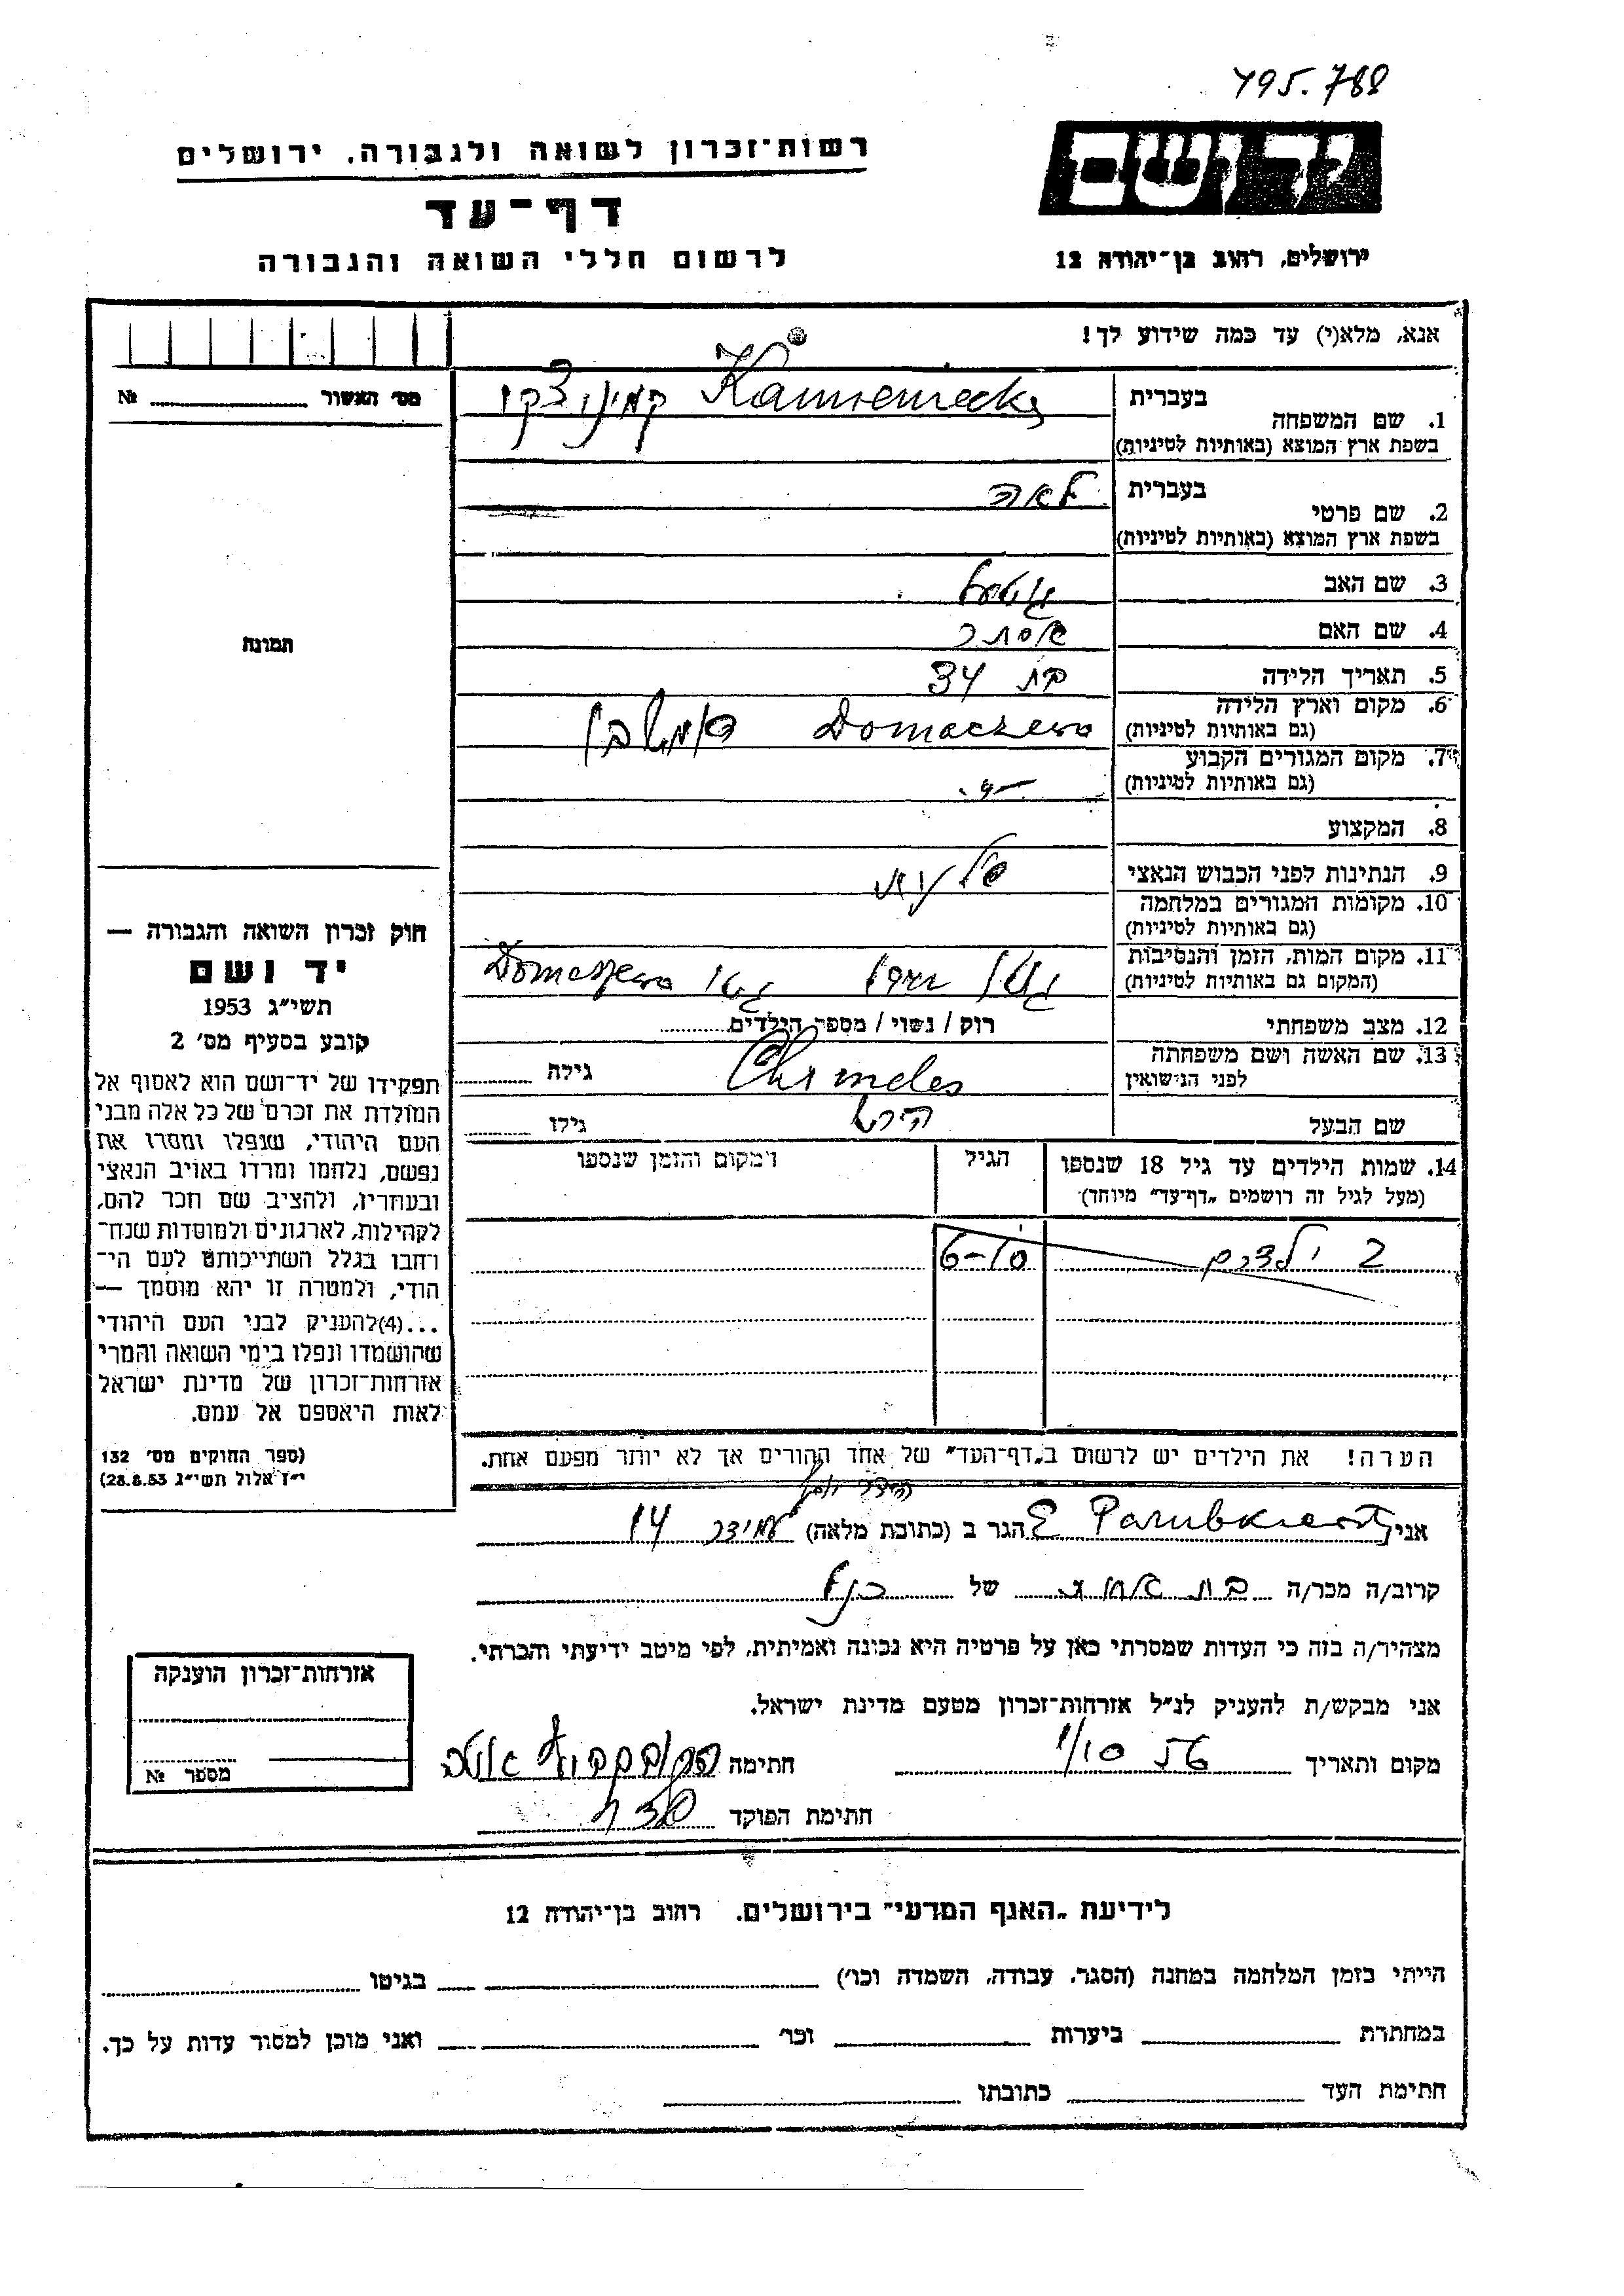 495.788
יד ושם
רשות־זכרון לשואה ולגבורה, ירושלים
דף־עד
ירושלים, רחוב בן־יהודה 12
לרשום חללי השואה והגבורה
אנא, מלא(י) עד כמה שידוע לך!
מס׳ האשור № 
1. שם המשפחה בעברית קמיניצקי Kamieniecki
בשפת ארץ המוצא (באותיות לטיניות)
2. שם פרטי בעברית לאה
בשפת ארץ המוצא (באותיות לטיניות)
3. שם האב
4. שם האם אסתר
5. תאריך הלידה בת 34
6. מקום וארץ הלידה Domaczewo
(גם באותיות לטיניות)
7. מקום המגורים הקבוע
(גם באותיות לטיניות)
8. המקצוע
9. הנתינות לפני הכבוש הנאצי
10. מקומות המגורים במלחמה
(גם באותיות לטיניות)
11. מקום המות, הזמן והנסיבות
(המקום גם באותיות לטיניות)
12. מצב משפחתי רוק / נשוי / מספר הילדים
13. שם האשה ושם משפחתה
לפני הנישואין גילה
שם הבעל הירש גילו
14. שמות הילדים עד גיל 18 שנספו הגיל המקום והזמן שנספו
(מעל לגיל זה רושמים „דף־עד” מיוחד)
2 ילדים 6-10
תמונה
חוק זכרון השואה והגבורה —
יד ושם
תשי״ג 1953
קובע בסעיף מס׳ 2
תפקידו של יד־ושם הוא לאסוף אל
המולדת את זכרם של כל אלה מבני
העם היהודי, שנפלו ומסרו את
נפשם, נלחמו ומרדו באויב הנאצי
ובעוזריו, ולהציב שם וזכר להם,
לקהילות, לארגונים ולמוסדות שנח־
רחבו בגלל השתייכותם לעם הי־
הודי, ולמטרה זו יהא מוסמך —
...(4) להעניק לבני העם היהודי
שהושמדו ונפלו בימי השואה והמרי
אזרחות־זכרון של מדינת ישראל
לאות היאספם אל עמם.
(ספר החוקים מס׳ 132
י״ז אלול תשי״ג 28.8.53)
הערה! את הילדים יש לרשום ב„דף־העד” של אחד ההורים אך לא יותר מפעם אחת.
אני הגר ב (כתובת מלאה) עמידר 14
קרוב/ה מכר/ה בת אחות של הנ״ל
מצהיר/ה בזה כי העדות שמסרתי כאן על פרטיה היא נכונה ואמיתית, לפי מיטב ידיעתי והכרתי.
אני מבקש/ת להעניק לנ״ל אזרחות־זכרון מטעם מדינת ישראל.
מקום ותאריך חתימה
חתימת הפוקד
אזרחות־זכרון הוענקה
מספר №
לידיעת „האגף המדעי” בירושלים, רחוב בן־יהודה 12
הייתי בזמן המלחמה במחנה (הסגר, עבודה, השמדה וכו׳) בגיטו
במחתרת ביערות וכו׳ ואני מוכן למסור עדות על כך.
חתימת העד כתובתו